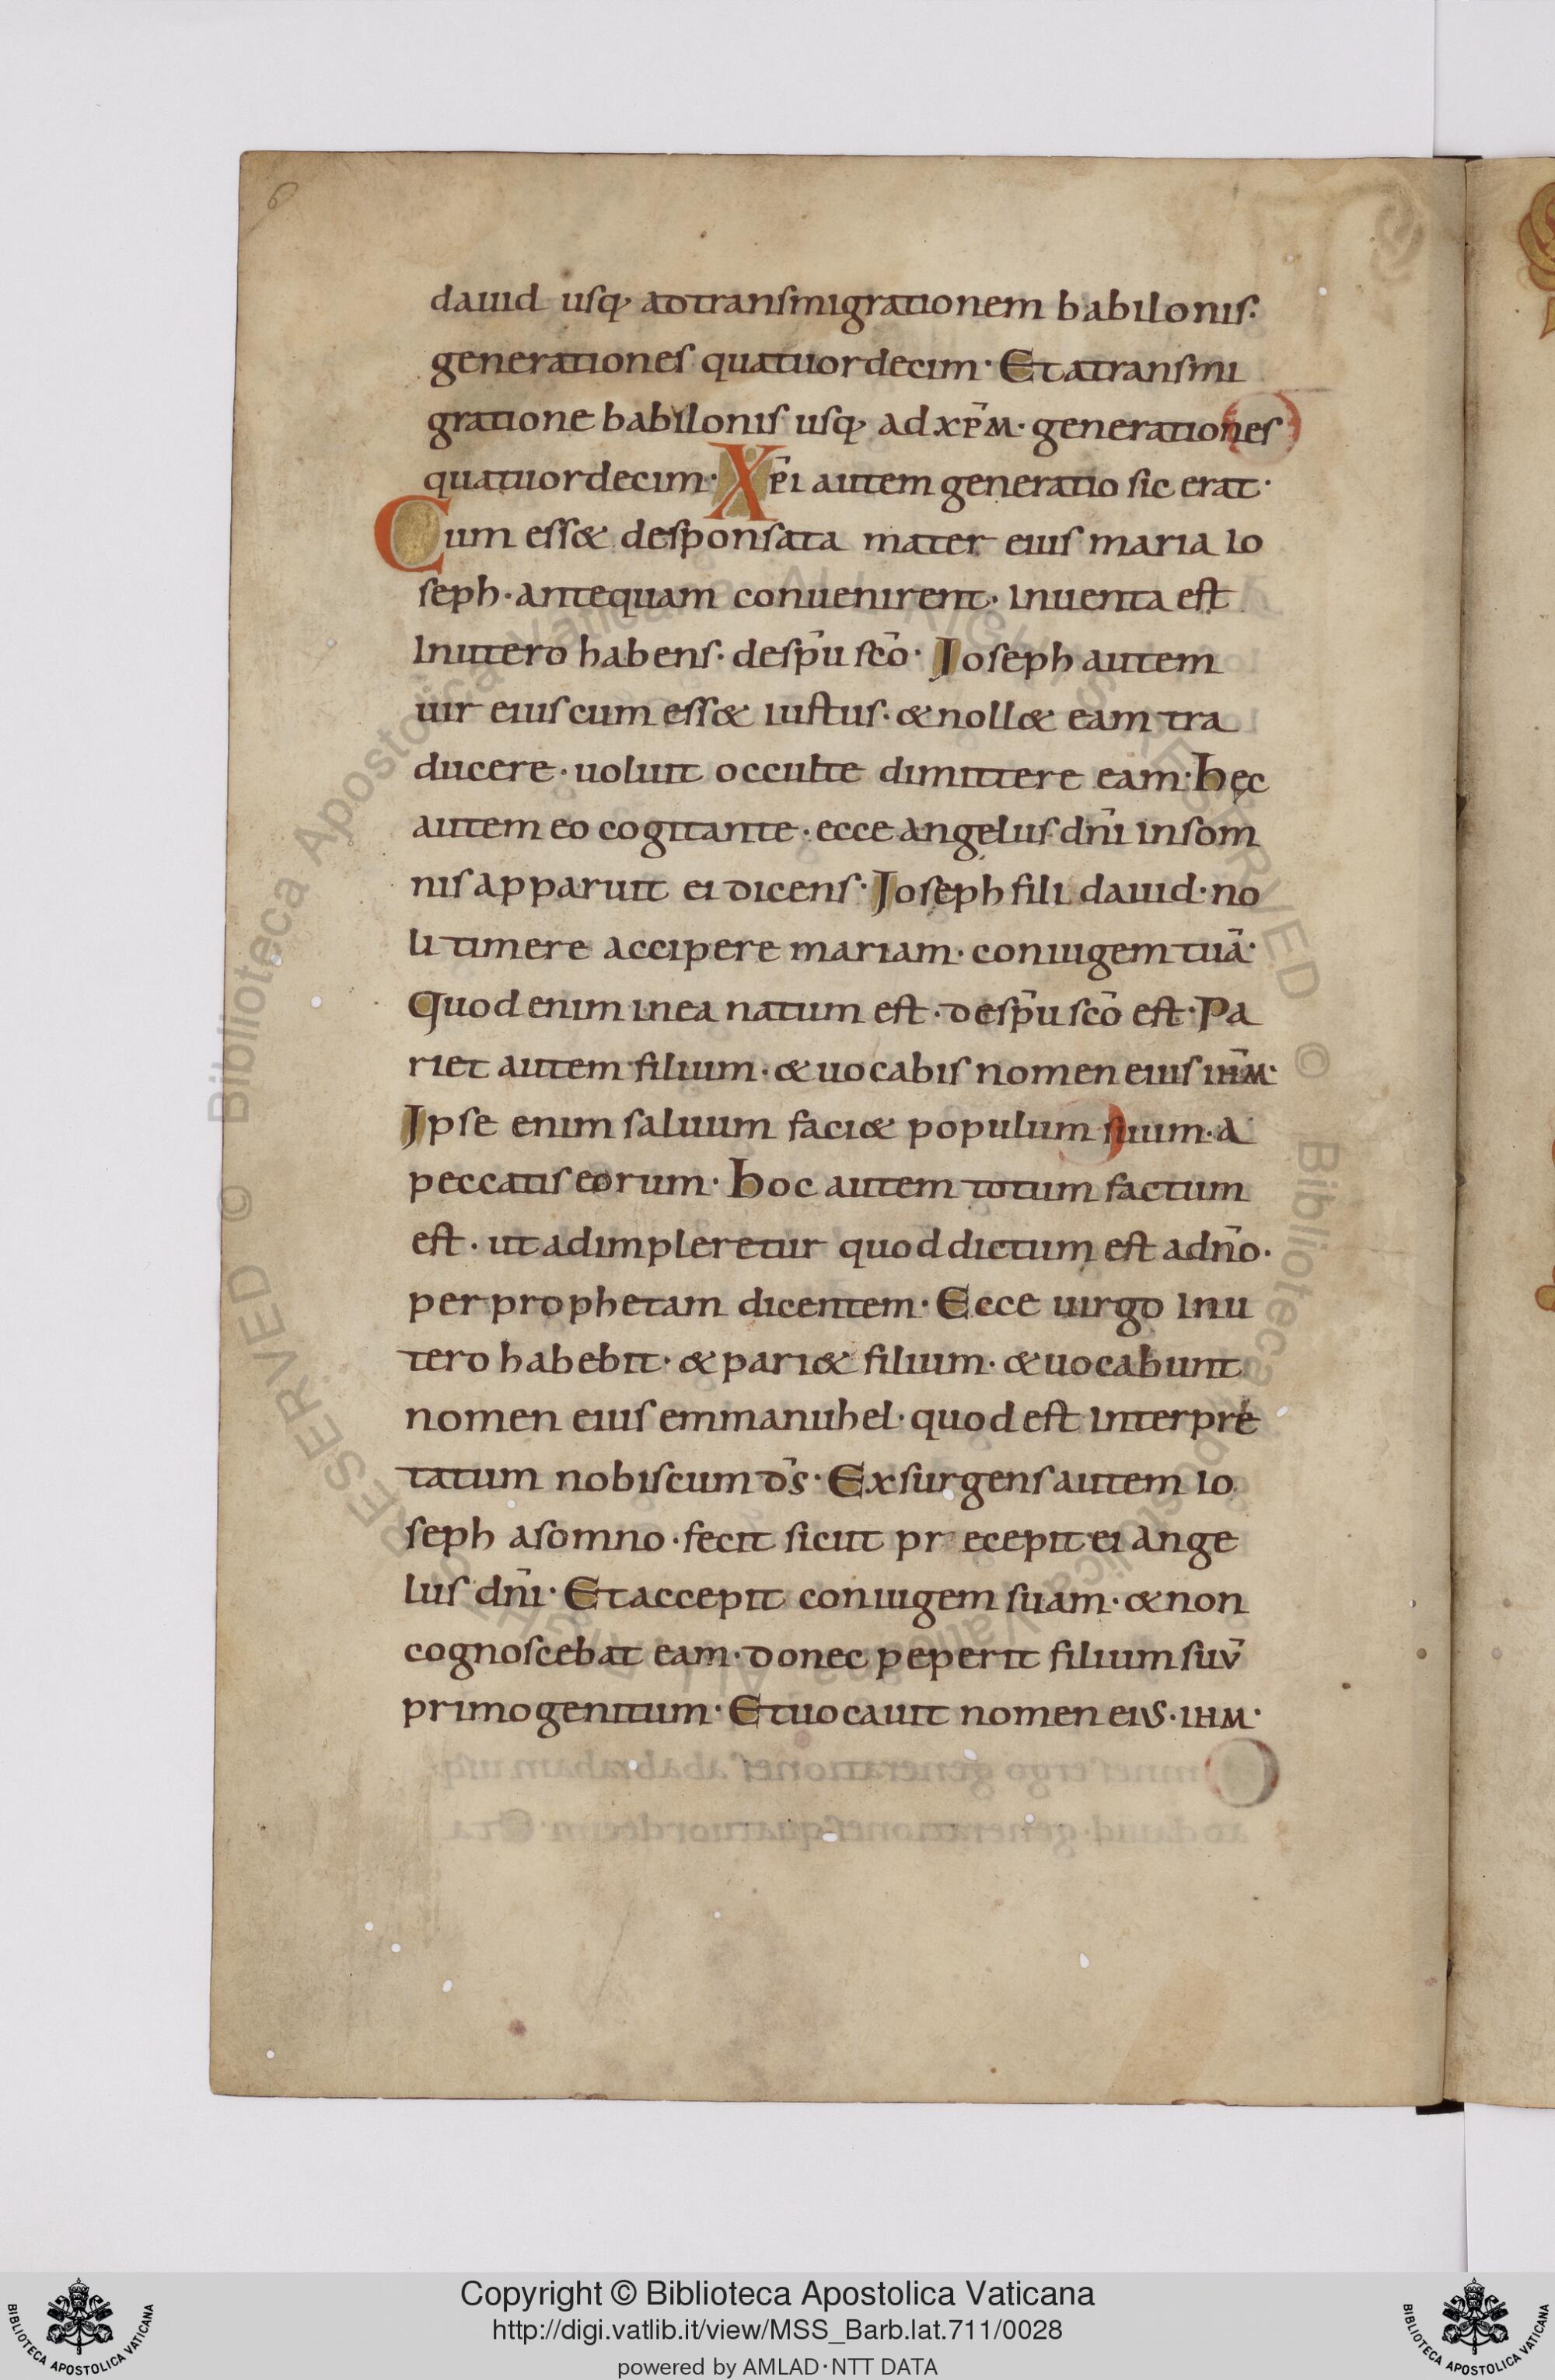 6
dauid usq; adtransmigrationem babilonis·
generationes quatuordecim· Et atransmi
gratione babilonis usq; ad xp̄m· generationes
quatuordecim· Xp̄i autem generatio sic erat·
Cum esset desponsata mater eius maria io
seph· antequam conuenirent· inuenta est
inutero habens· despū scō· Ioseph autem
uir eius cum esset iustus· & nollet eam tra
ducere· uoluit occulte dimittere eam· hęc
autem eo cogitante· ecce angelus dn̄i in som
nis apparuit ei dicens· Ioseph fili dauid· no
li timere accipere mariam· coniugem tuā·
Quod enim in ea natum est· despū scō est· Pa
riet autem filium· & uocabis nomen eius ih̄m·
Ipse enim saluum faciet populum suum· a
peccatis eorum· hoc autem totum factum
est· ut adimpleretur quod dictum est adn̄o·
per prophetam dicentem· Ecce uirgo inu
tero habebit· & pariet filium· & uocabunt
nomen eius emmanuhel· quod est interpre
tatum nobiscum d̄s· Exsurgens autem io
seph asomno· fecit sicut pr ecepit ei ange
lus dn̄i· Et accepit coniugem suam· & non
cognoscebat eam· donec peperit filium suū
primogenitum· Et uocauit nomen eius· ihm·
Copyright © Biblioteca Apostolica Vaticana
http://digi.vatlib.it/view/MSS_Barb.lat.711/0028
powered by AMLAD·NTT DATA
BIBLIOTECA APOSTOLICA VATICANA
BIBLIOTECA APOSTOLICA VATICANA